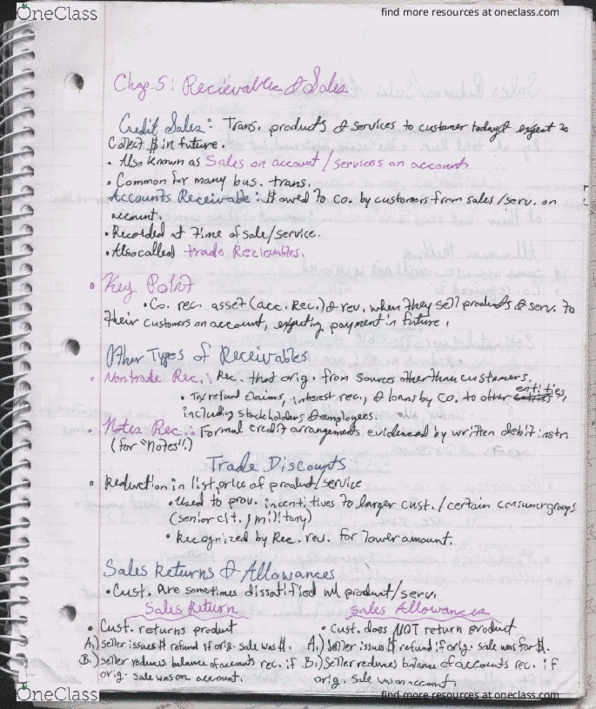 OneClass
find more resources at oneclass.com
Chap. 5: Recievables & Sales
Credit Sales: Trans. products & services to customer today & expect to
collect $ in future.
• Also known as Sales on account / services on account
• Common for many bus. trans.
Accounts Receivable: $ owed to co. by customers from sales/serv. on
account.
• Recorded at time of sale/service.
• Also called trade Recievables.
• Key Point
• Co. rec. asset (acc. Rec.) & rev. when they sell products & serv. to
their customers on account, expecting payment in future.
Other Types of Receivables
• Nontrade Rec.: Rec. that orig. from sources other than customers.
• Tax refund claims, interest rec., & loans by co. to other entities,
including stockholders & employees.
• Notes Rec.: Formal credit arrangements evidenced by written debt instr.
(or "Notes")
Trade Discounts
• Reduction in list price of product/service
• Used to prov. incentitives to larger cust. / certain consumer groups
(senior cit., military)
• Recognized by Rec. rev. for lower amount.
Sales Returns & Allowances
• Cust. are sometimes dissatified w/ product/serv.
Sales Return Sales Allowances
• Cust. returns product • Cust. does NOT return product
A.) Seller issues $ refund if orig. sale was $. A.) Seller issues $ refund if orig. sale was for $.
B.) Seller reduces balance of accounts rec. if B.) Seller reduces balance of accounts rec. if
orig. sale was on account. orig. sale was on account.
OneClass
find more resources at oneclass.com